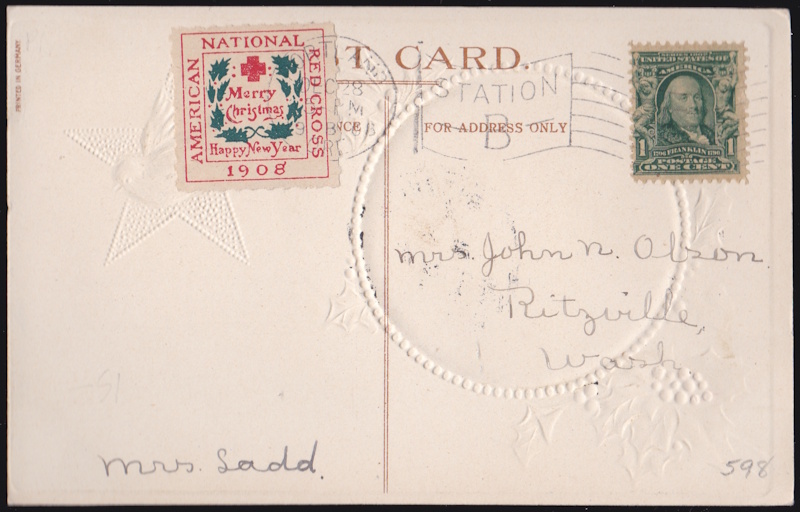 PRINTED IN GERMANY
AMERICAN
NATIONAL
RED CROSS
Merry
Christmas
Happy New Year
1908
ST CARD.
28
STATION
B
NCE
FOR ADDRESS ONLY
UNITED STATES OF
AMERICA
1706 FRANKLIN 1790
1 POSTAGE 1
ONE CENT
Mrs. John N. Olson.
Ritzville,
Wash.
Mrs. Ladd.
598